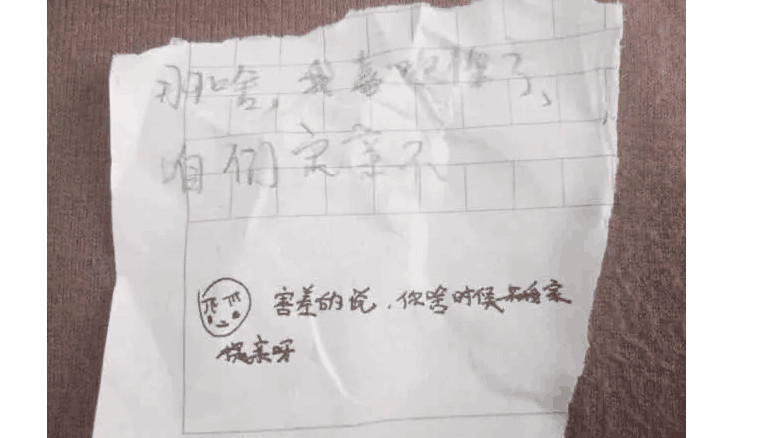 那啥，我喜欢你了、
咱们定亲不
害羞的说，你啥时候我家
提亲呀